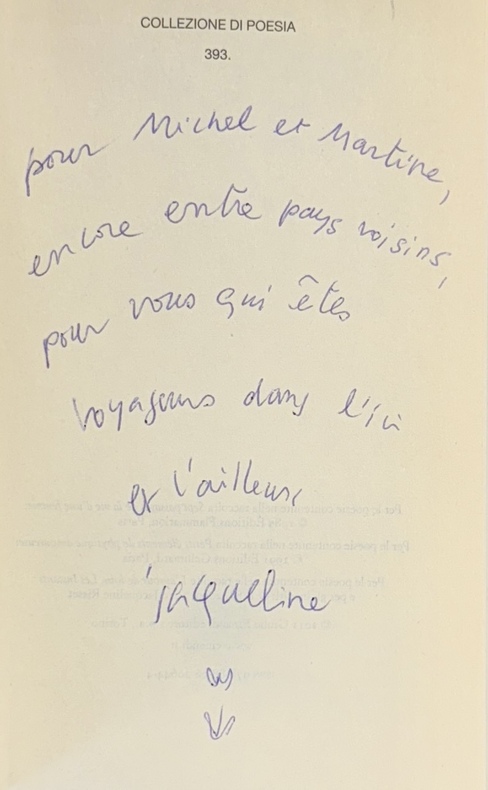 COLLEZIONE DI POESIA
393.
pour Michel et Martine,
encore entre pays voisins,
pour vous qui êtes
voyageurs dans l'ici
et l'ailleurs
Jacqueline